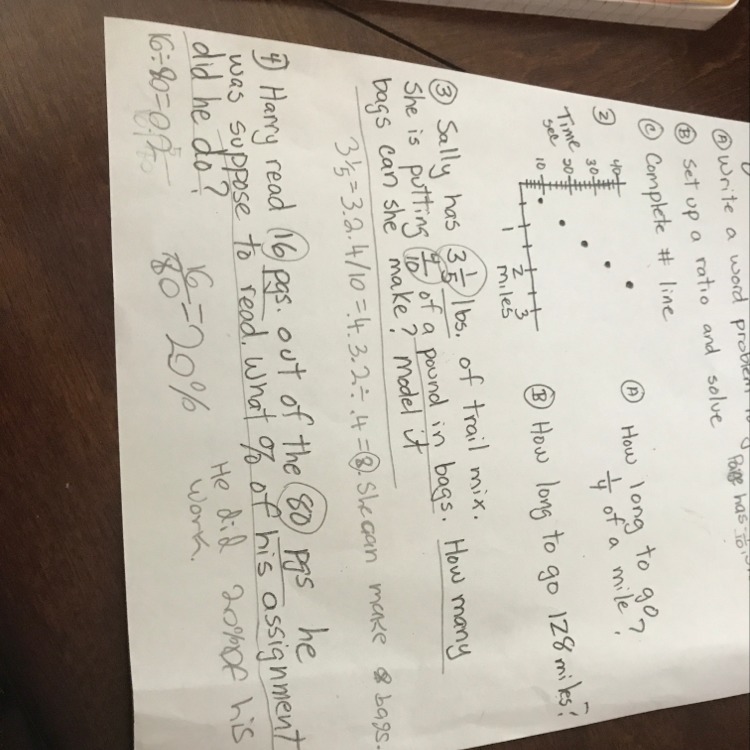 Ⓐ Write a word problem
has
Ⓑ set up a ratio and solve
Ⓒ Complete # line
②
Time
sec
40
30
20
10
1
2
3
miles
Ⓐ How long to go
1/4 of a mile?
Ⓑ How long to go 128 miles?
③ Sally has 3 1/5 lbs. of trail mix.
She is putting 4/10 of a pound in bags. How many
bags can she make? model it
3 1/5 = 3.2. 4/10 = .4. 3.2 ÷ .4 = 8. She can make 8 bags.
④ Harry read 16 pgs. out of the 80 pgs he
was suppose to read. What % of his assignment
did he do?
16÷80=0.2
16/80 = 20%
He did 20% of his
work.